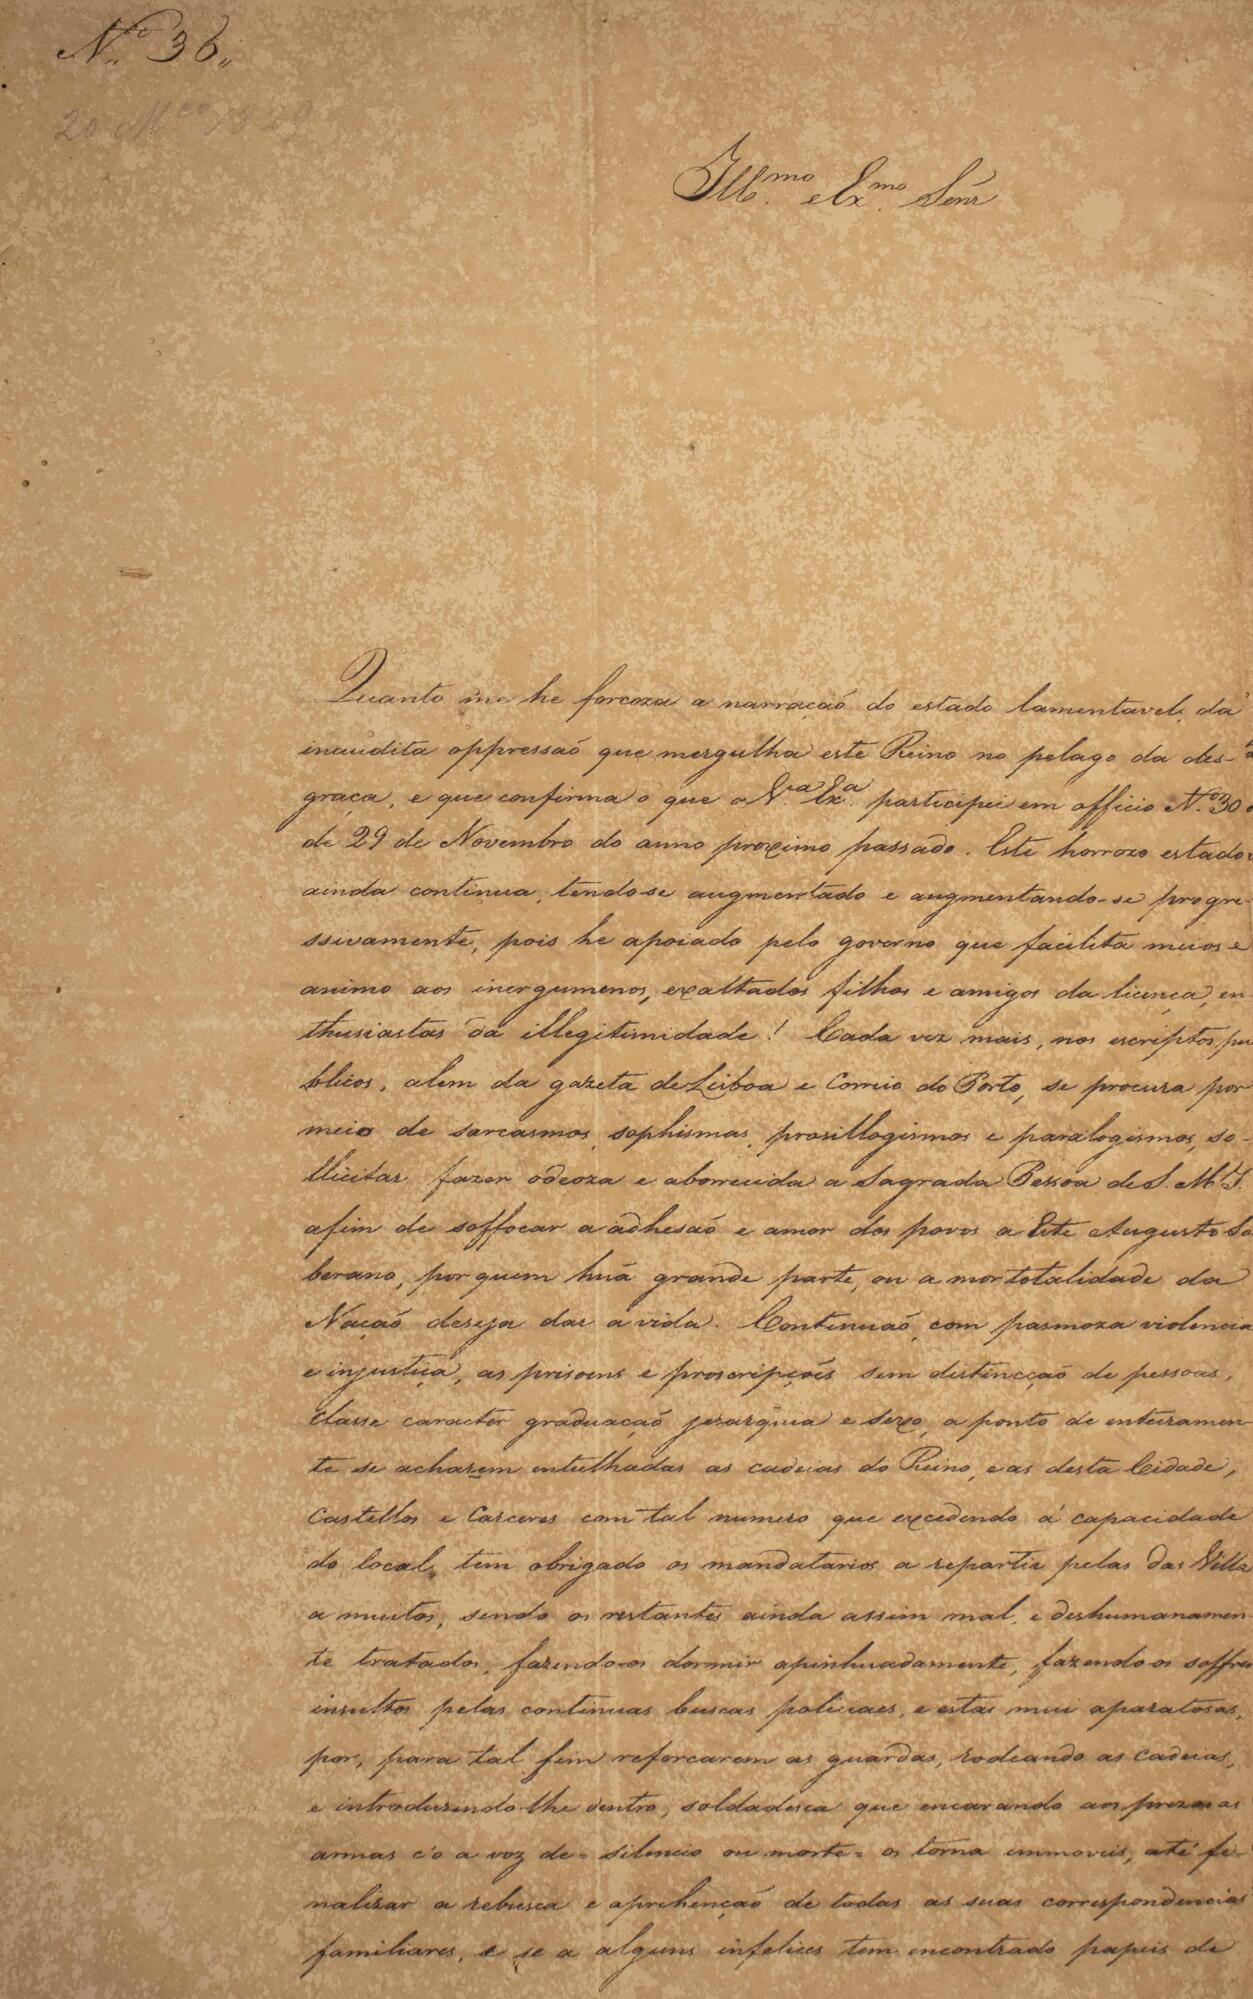 N.º 36.
20 M.ço 1829
Ill.mo e Ex.mo Senr
Quanto me he forcoza a narração do estado lamentavel, da
inaudita oppressaõ que mergulha este Reino no pelago da des-
graça, e que confirma o que a V.a Ex.a participei em officio N.º 30
de 29 de Novembro do anno proximo passado. Este horrozo estado
ainda continua, tendo-se augmentado e augmentando-se progre-
ssivamente, pois he apoiado pelo governo que facilita meios e
animo aos inergumenos, exaltados filhos e amigos da licença, en-
thusiastas da illegitimidade! Cada vez mais, nos escriptos pu
blicos, alem da gazeta de Lisboa e Correio do Porto, se procura por
meio de sarcasmos, sophismas, prosillogismos e paralogismos, so-
llicitar fazer odeoza e aborrecida a Sagrada Pessoa de S. M. I.
afim de soffocar a adhesaõ e amor dos povos a Este Augusto So
berano, por quem huã grande parte, ou a mor totalidade da
Naçaõ deseja dar a vida. Continuaõ, com pasmoza violencia
e injustiça, as prisoens e proscripçoẽs sem distincçaõ de pessoas,
classe caracter graduaçaõ jerarquia e sexo, a ponto de enteiramen-
te se acharem entulhadas as cadeias do Reino, e as desta Cidade,
Castellos e Carceres com tal numero que excedendo á capacidade
do local, tem obrigado os mandatarios a repartir pelas das Villa
a muitos, sendo os restantes ainda assim mal, e deshumanamen-
te tratados, fazendo-os dormir apinhuadamente, fazendo-os soffrer
insultos pelas continuas buscas policiaes, e estas mui aparatosas,
por, para tal fim reforcarem as guardas, rodeando as cadeias,
e introduzindo-lhe dentro, soldadesca que encarando aos prezos as
armas c'o a voz de = silencio ou morte = os torna immoveis, até fi-
nalizar a rebusca e aprehençaõ de todas as suas correspondencias
familiares, e se a alguns infelices tem encontrado papeis de